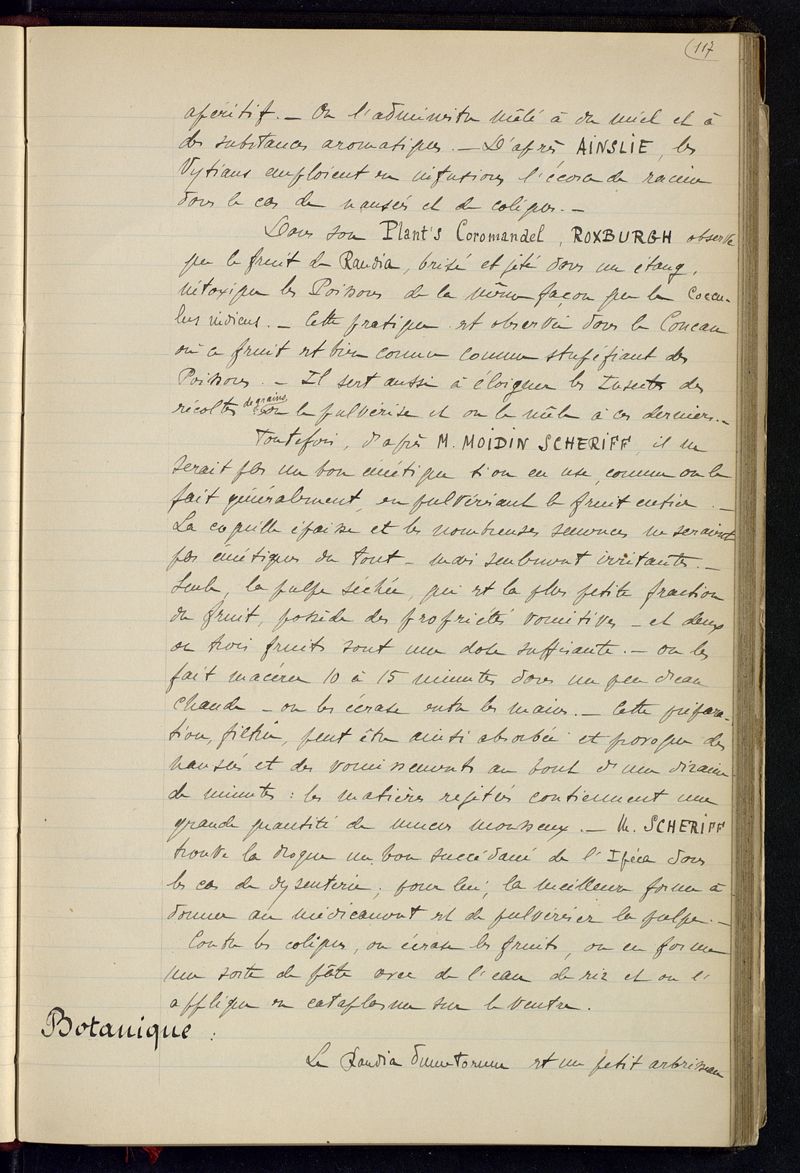 117
apéritif. – On l'administre mêlé à du miel et à
des substances aromatiques. – D'après AINSLIE, les
Vytians emploient en infusions l'écorce de racine
dans le cas de nausées et de coliques. –
Dans son Plant's Coromandel, ROXBURGH observe
que le fruit de Randia, brisé et jeté dans un étang,
intoxique les Poissons de la même façon que le Coccu-
lus indicus. – Cette pratique est observée dans le Concan
où ce fruit est bien connu comme stupéfiant des
Poissons. – Il sert aussi à éloigner les Insectes des
récoltes de grains on le pulvérise et on le mêle à ces derniers. –
Toutefois, d'après M. MOIDIN SCHERIFF, il ne
serait pas un bon émétique si on en use, comme on le
fait généralement, en pulvérisant le fruit entier. –
La coquille épaisse et les nombreuses semences ne seraient
pas émétiques du tout – mais seulement irritantes. –
Seule, la pulpe séchée, qui est la plus petite fraction
du fruit, possède des propriétés vomitives – et deux
ou trois fruits sont une dose suffisante. – on les
fait macérer 10 à 15 minutes dans un peu d'eau
chaude – on les écrase entre les mains. – Cette prépara-
tion, filtrée, peut être ainsi absorbée et provoque des
nausées et des vomissements au bout d'une dizaine
de minutes : les matières rejetées contiennent une
grande quantité de mucus mousseux. – M. SCHERIFF
trouve la drogue un bon succédané de l'Ipéca dans
les cas de dysenterie ; pour lui, la meilleure forme à
donner au médicament est de pulvériser la pulpe. –
Contre les coliques, on écrase les fruits, on en forme
une sorte de pâte avec de l'eau de riz et on l'
applique en cataplasme sur le ventre.
Botanique :
Le Randia dumetorum est un petit arbrisseau